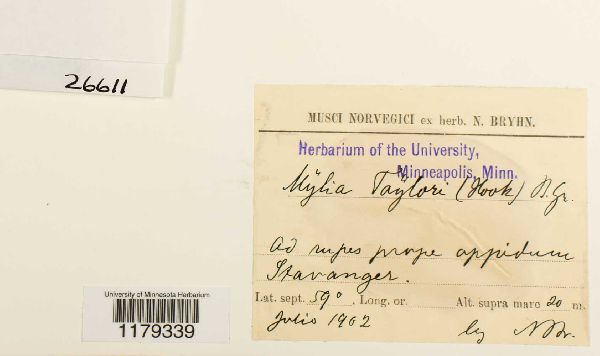 26611
MUSCI NORVEGICI ex herb. N. BRYHN.
Herbarium of the University,
Minneapolis, Minn.
Mÿlia Taÿlori (Hook) B. Gr.
Ad rupes prope oppidum
Stavanger.
Lat. sept. 59° . Long. or. Alt. supra mare 20 m.
Julio 1902 leg NBr.
University of Minnesota Herbarium
1179339